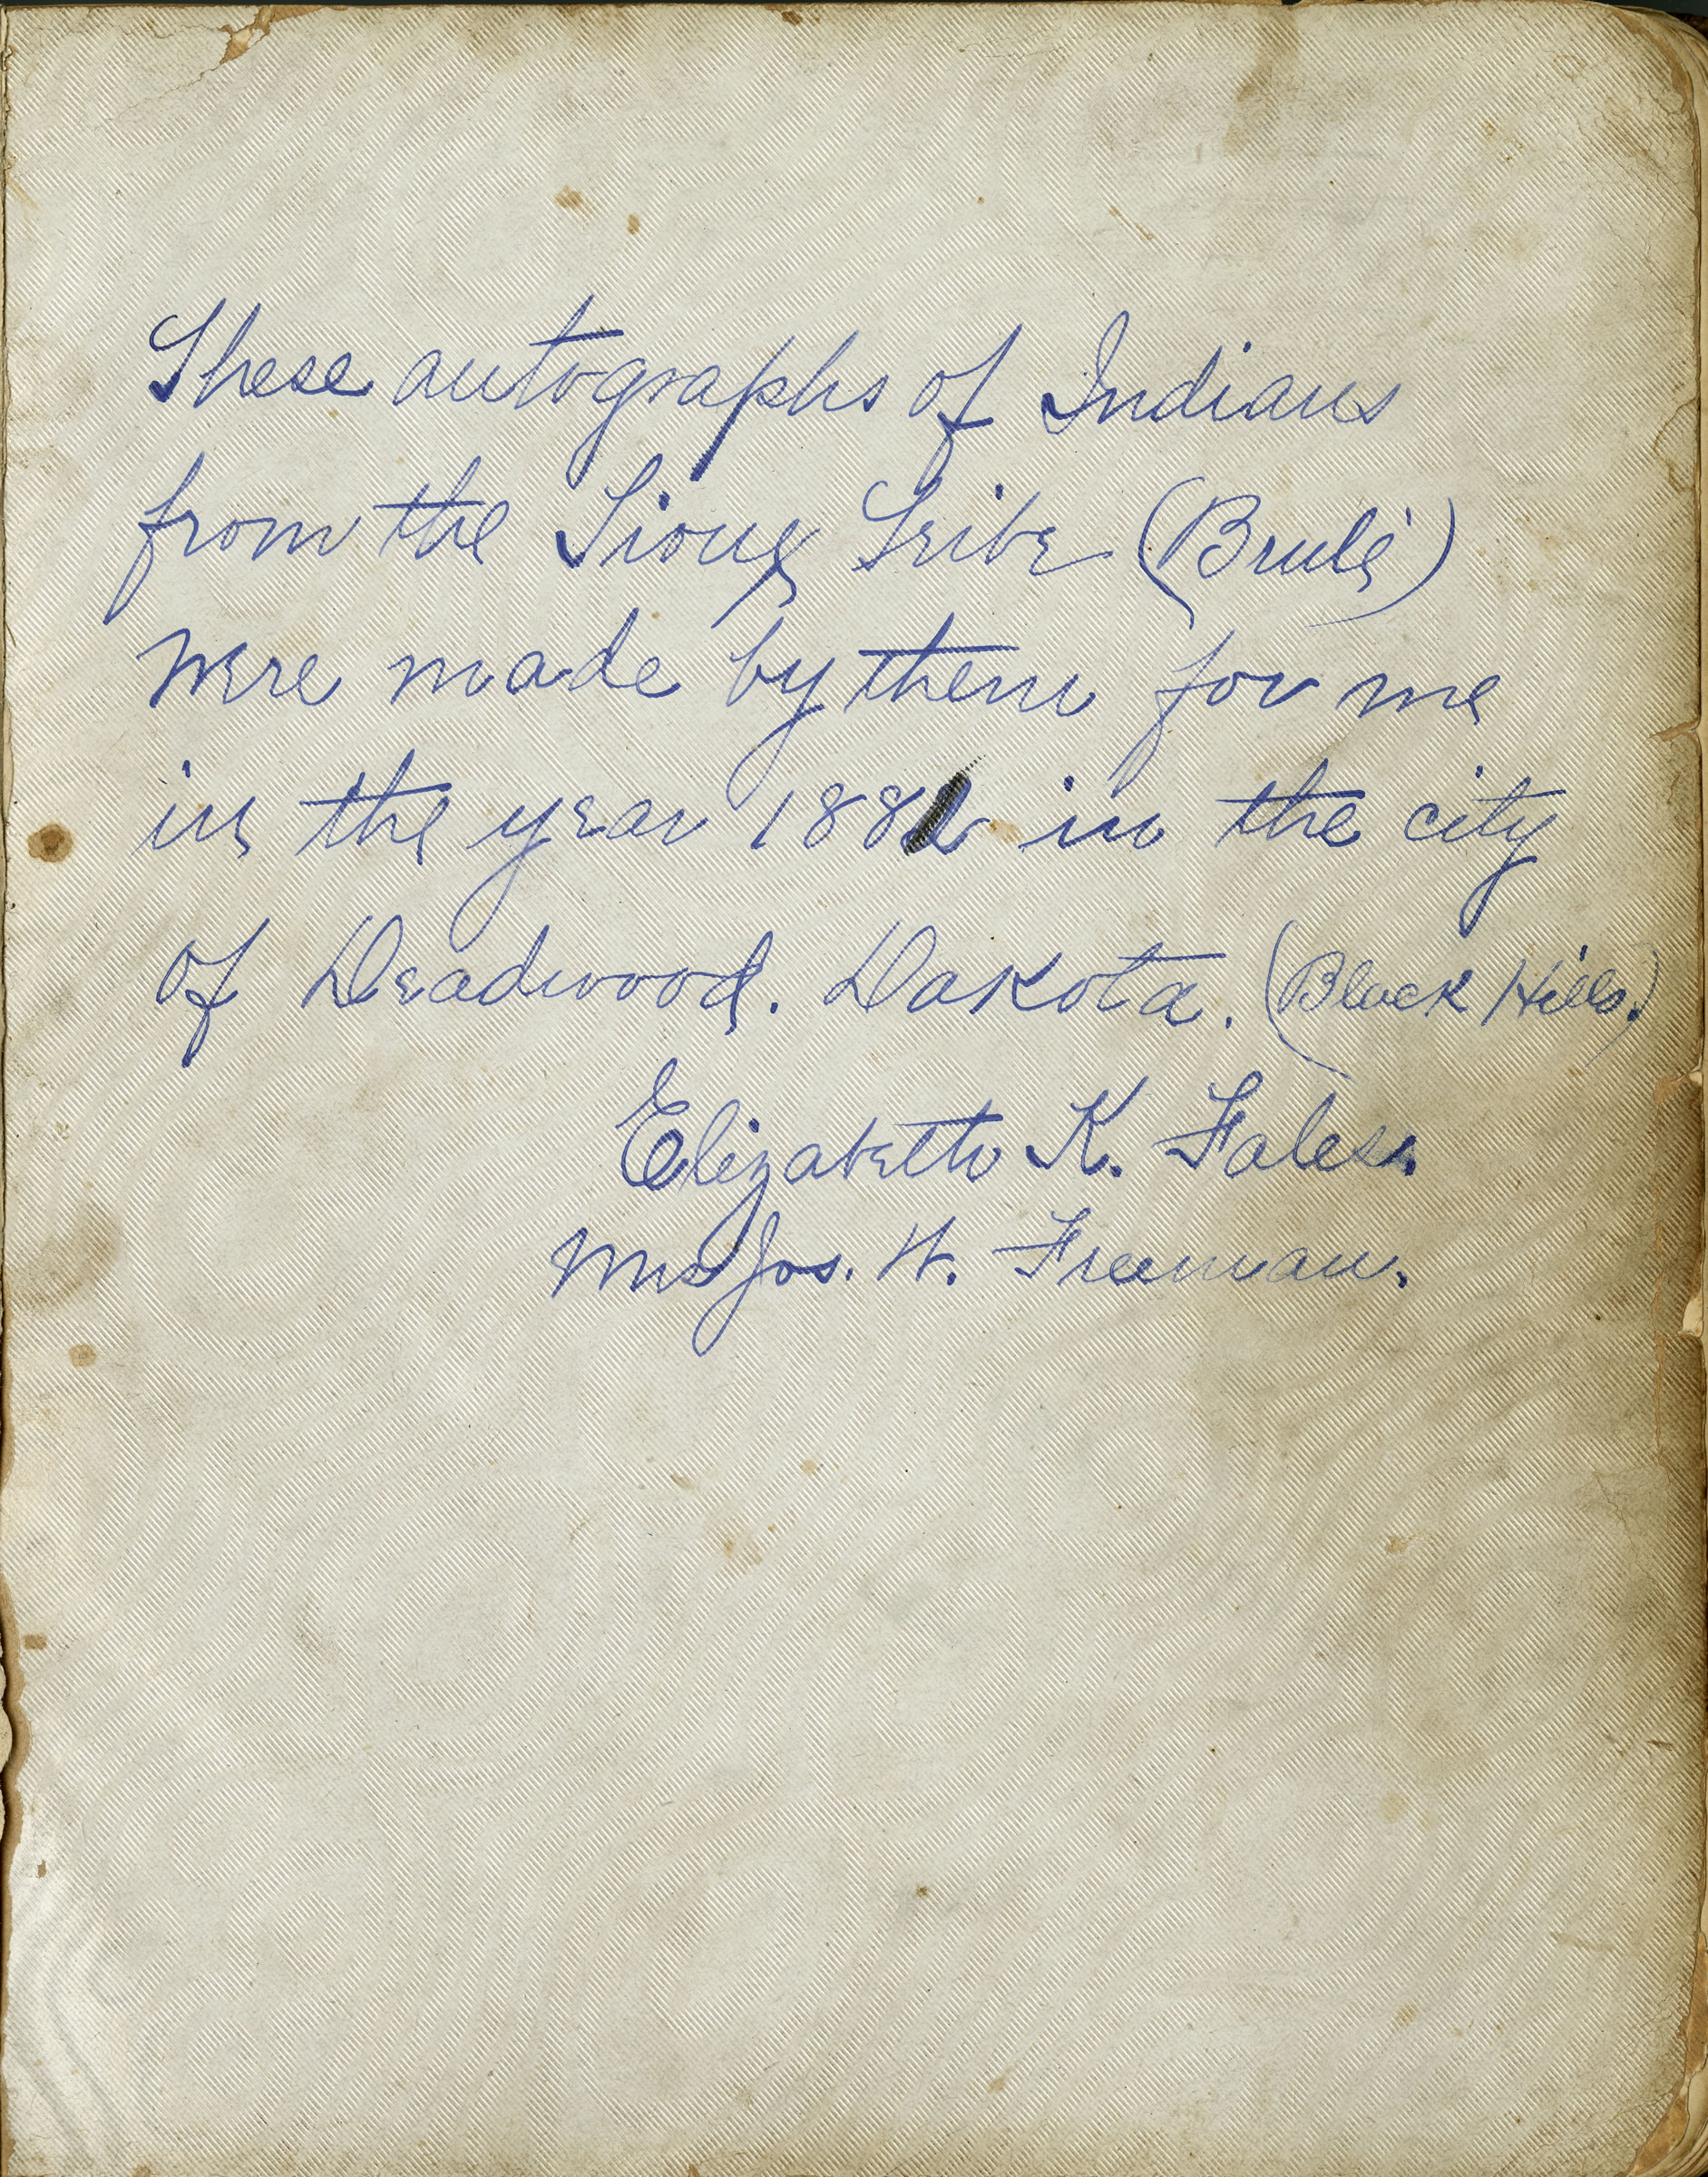 These autographs of Indians
from the Sioux Tribe (Brulé)
were made by them for me
in the year 1881 in the city
of Deadwood. Dakota. (Black Hills.)
Elizabeth K. Fales.
Mrs Jos. H. Freeman.